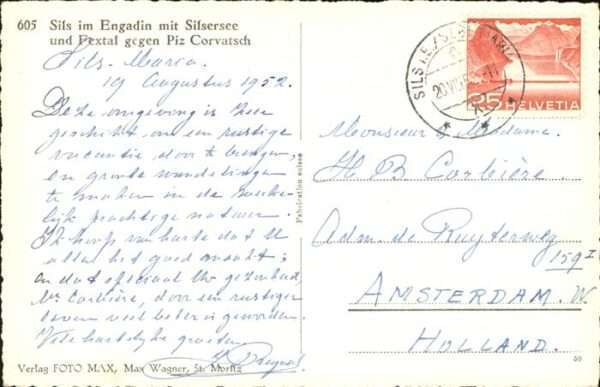 605 Sils im Engadin mit Silsersee
und Fextal gegen Piz Corvatsch
Sils-Maria.
19 Augustus 1952.
Deze omgeving is zeer
geschikt om een rustige
vacantie door te brengen,
en groote wandelingen
te maken in de
prachtige natuur.
Ik hoop van harte dat U
allen het goed maakt;
en dat speciaal Uw gezondheid,
Mr Corbière, door een rustiger
leven veel beter is geworden.
Vele hartelijke groeten
Fabrication suisse
SILS
25 HELVETIA
Monsieur & Madame.
H. B. Corbière.
Adm. de Ruyterweg
159 I
AMSTERDAM. W.
HOLLAND.
Verlag FOTO MAX, Max Wagner, St. Moritz